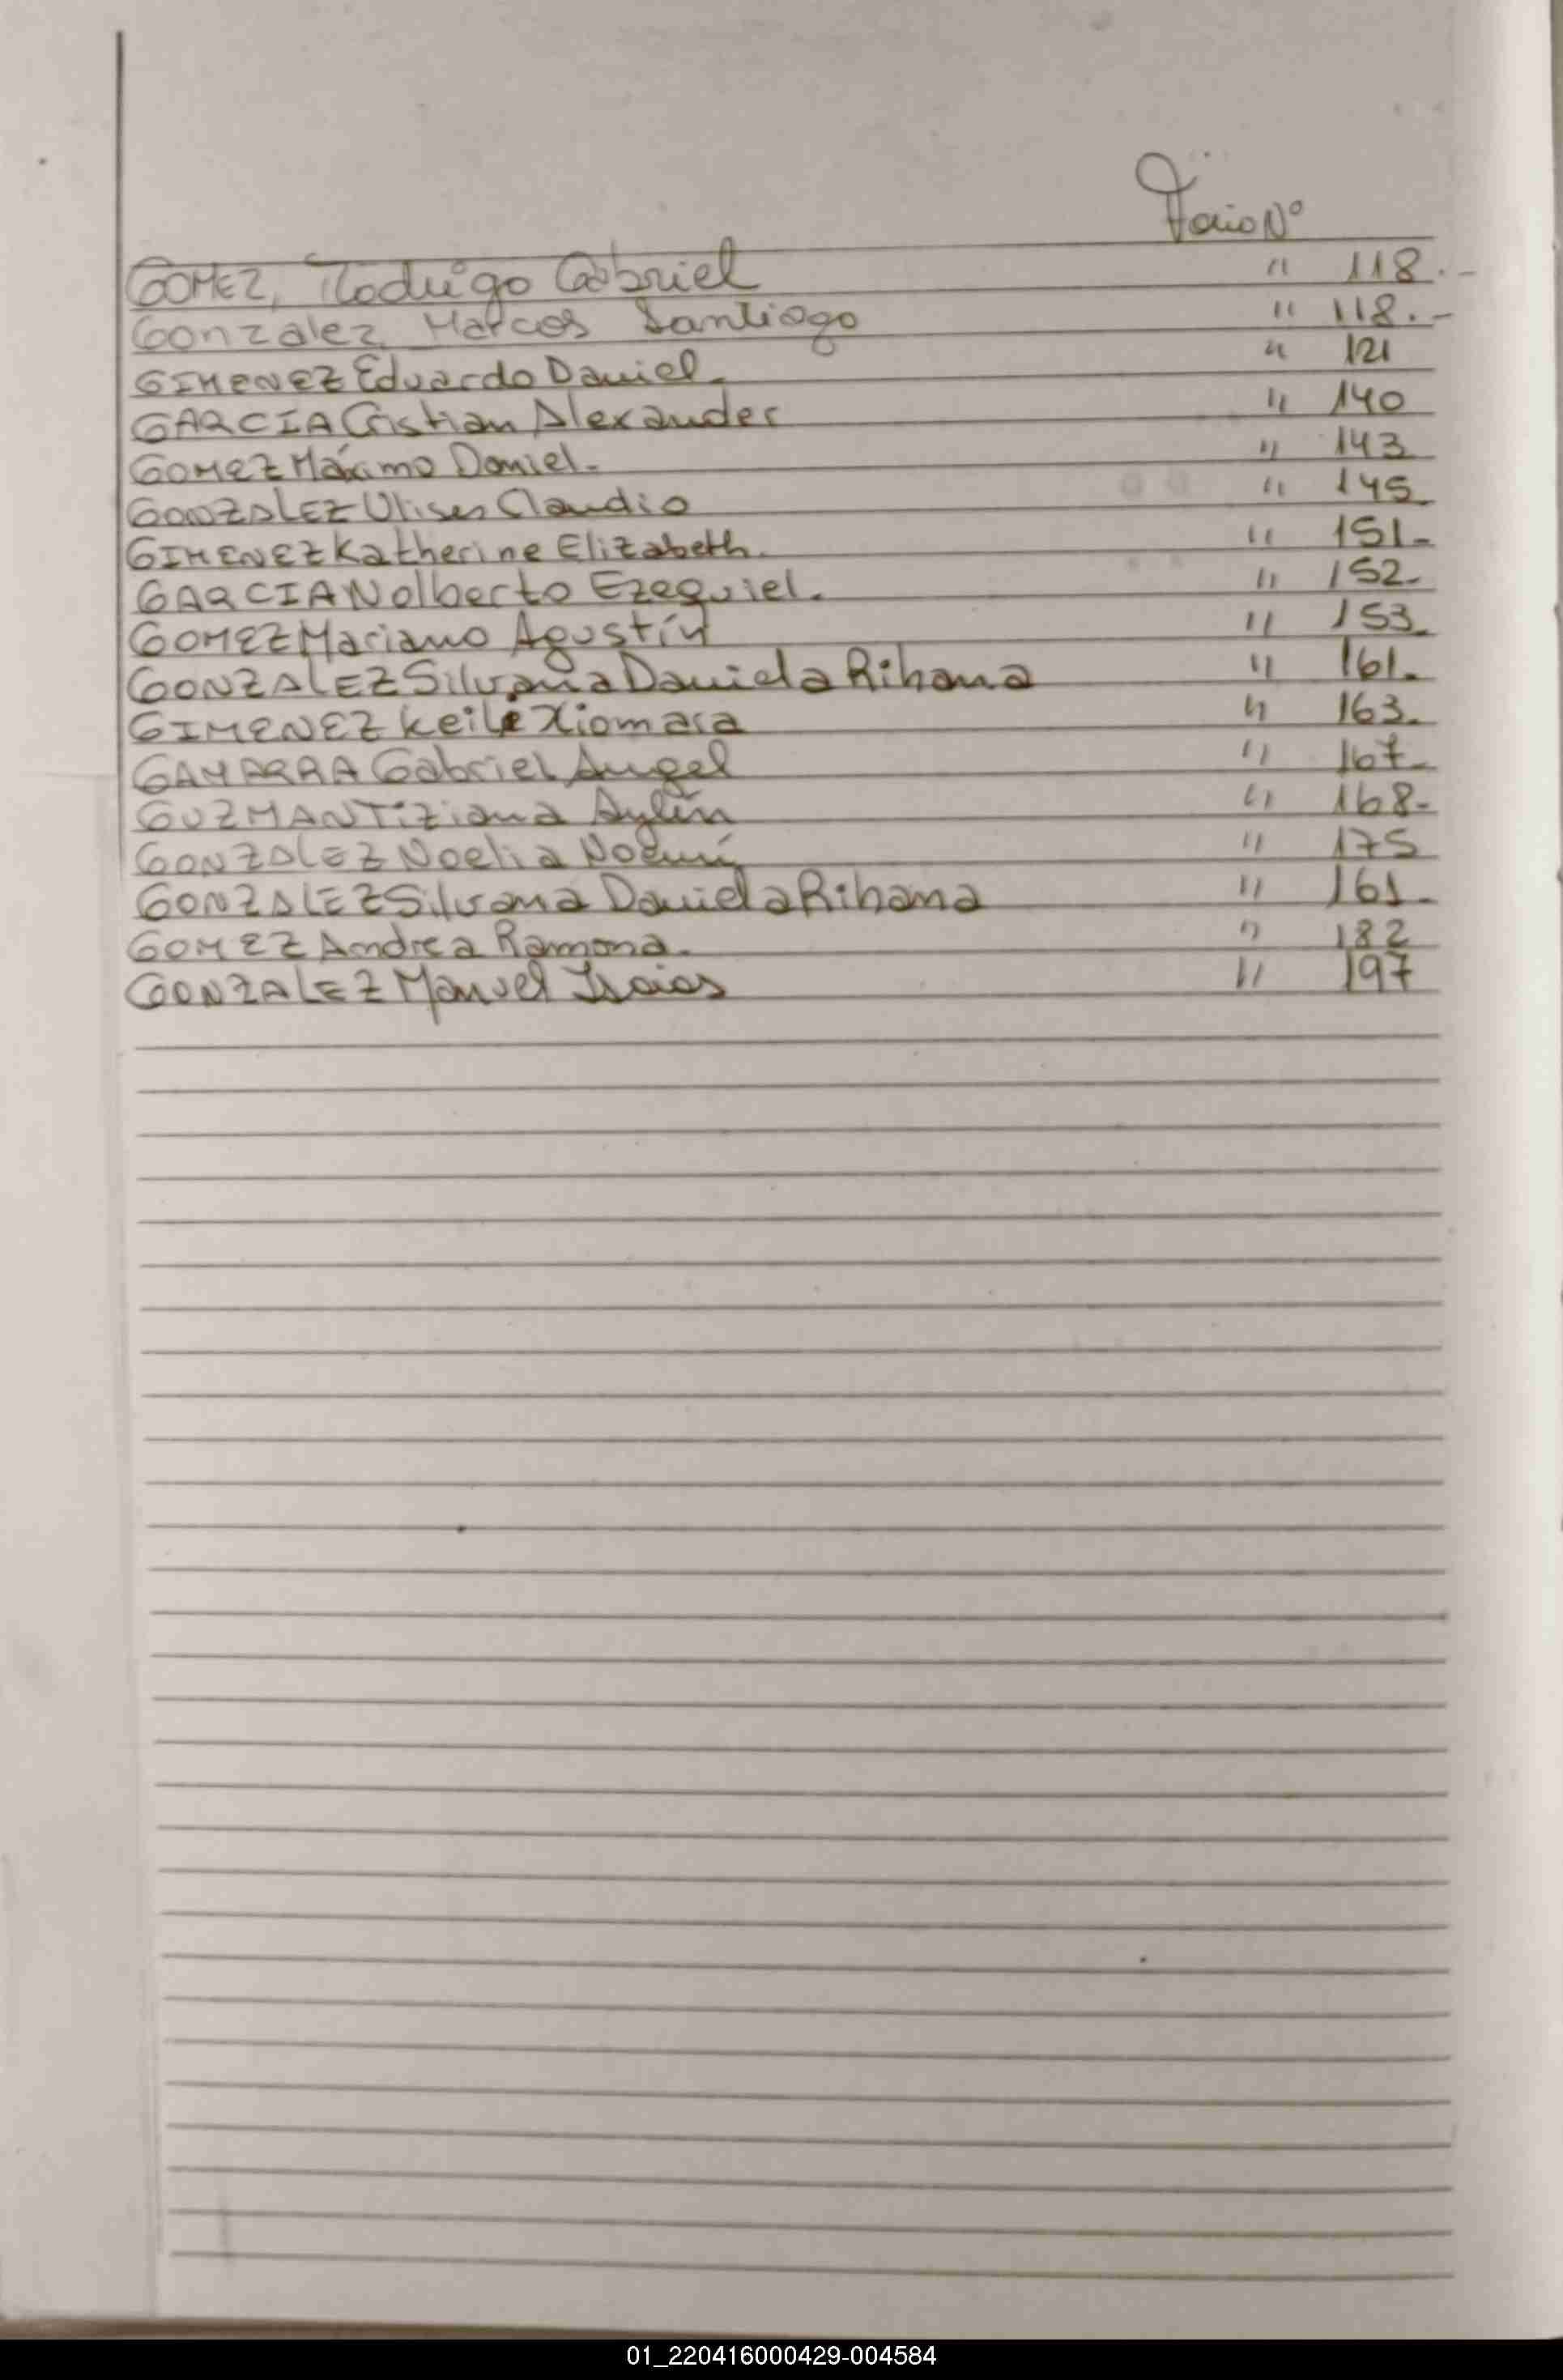 Folio Nº
GOMEZ, Rodrigo Gabriel " 118.-
Gonzalez, Marcos Santiago " 118.-
GIMENEZ Eduardo Daniel. " 121
GARCIA Cristian Alexander " 140
GOMEZ Máximo Daniel. " 143
GONZALEZ Ulises Claudio " 145.
GIMENEZ Katherine Elizabeth. " 151.
GARCIA Nolberto Ezequiel. " 152.
GOMEZ Mariano Agustín " 153.
GONZALEZ Silvana Daniela Rihana " 161.
GIMENEZ Keile Xiomara " 163.
GAMARRA Gabriel Angel " 167.
GUZMAN Tiziana Aylén " 168-
GONZALEZ Noelia Noemí " 175
GONZALEZ Silvana Daniela Rihana " 161.
GOMEZ Andrea Ramona. " 182
GONZALEZ Manuel Isaias " 197
01_220416000429-004584